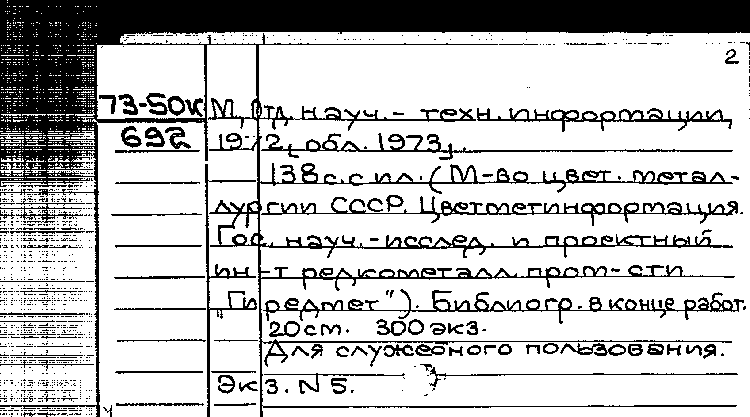 2
73-50к М, Отд. науч.- техн. информации,
692 1972, [обл. 1973].
138 с. с ил. (М-во цвет. метал-
лургии СССР. Цветметинформация.
Гос. науч.-исслед. и проектный
ин-т редкометалл. пром-сти
"Гиредмет"). Библиогр. в конце работ.
20см. 300 экз.
Для служебного пользования.
Экз. N 5.